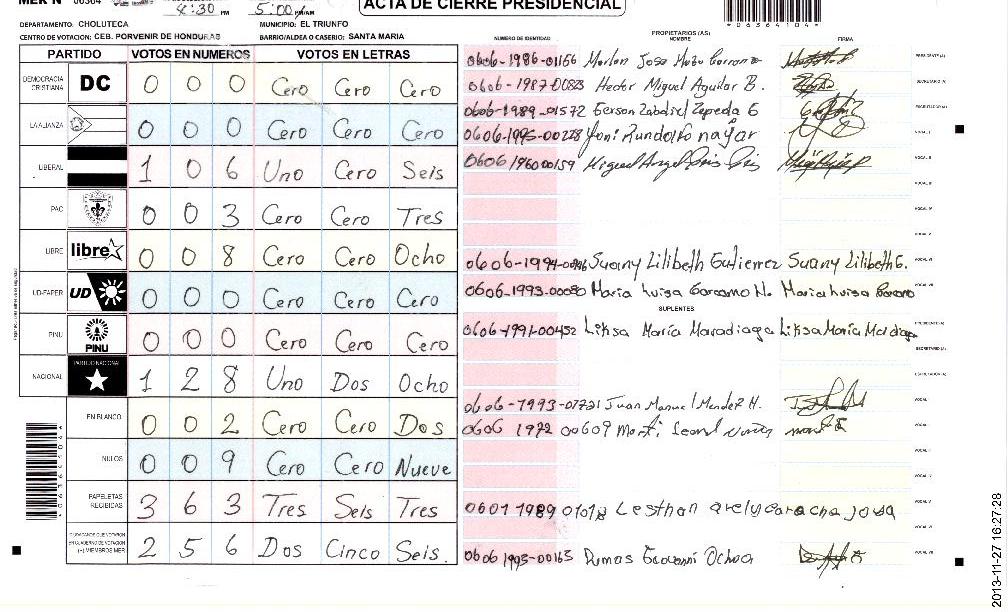 MER N° 06364 4:30 PM 5:00 PM/AM ACTA DE CIERRE PRESIDENCIAL
*06364104*
DEPARTAMENTO: CHOLUTECA MUNICIPIO: EL TRIUNFO
CENTRO DE VOTACION: CEB. PORVENIR DE HONDURAS BARRIO/ALDEA O CASERIO: SANTA MARIA
PARTIDO VOTOS EN NUMEROS VOTOS EN LETRAS
DEMOCRACIA CRISTIANA DC 0 0 0 Cero Cero Cero
LA ALIANZA 0 0 0 Cero Cero Cero
LIBERAL 1 0 6 Uno Cero Seis
PAC 0 0 3 Cero Cero Tres
LIBRE libre 0 0 8 Cero Cero Ocho
UD-FAPER UD 0 0 0 Cero Cero Cero
PINU PINU 0 0 0 Cero Cero Cero
NACIONAL PARTIDO NACIONAL 1 2 8 Uno Dos Ocho
EN BLANCO 0 0 2 Cero Cero Dos
NULOS 0 0 9 Cero Cero Nueve
PAPELETAS RECIBIDAS 3 6 3 Tres Seis Tres
CIUDADANOS QUE VOTARON EN CUADERNO DE VOTACION (+) MIEMBROS MER 2 5 6 Dos Cinco Seis.
PROPIETARIOS (AS)
NUMERO DE IDENTIDAD NOMBRE FIRMA
0606-1986-01166 Marlon Jose PRESIDENTE(A)
0606-1987-00823 Hector Miguel Aguilar B. SECRETARIO (A)
0606-1989-01572 Gerson Zabdiel Zepeda G
0606-1993-00228 Yoni Rundolfo nayar VOCAL I
0606 1960 00159 Miguel Angel VOCAL II
VOCAL III
VOCAL IV
VOCAL V
0606-1994- Suany Lilibeth Gutierrez Suany Lilibeth G. VOCAL VI
0606-1993-00080 Maria Luisa Carcamo H. Maria Luisa Carcamo VOCAL VII
SUPLENTES
0606-1991-00452 Liksa María Maradiaga Liksa María PRESIDENTE(A)
SECRETARIO (A)
0606-1993-01721 Juan Manuel Mendez H. VOCAL
0606 1972 00609 VOCAL
VOCAL
0601 1989 Lesthan arely VOCAL V
VOCAL VI
0606 1993-00163 Dumas Geovanni Ochoa VOCAL VII
2013-11-27 16:27:28